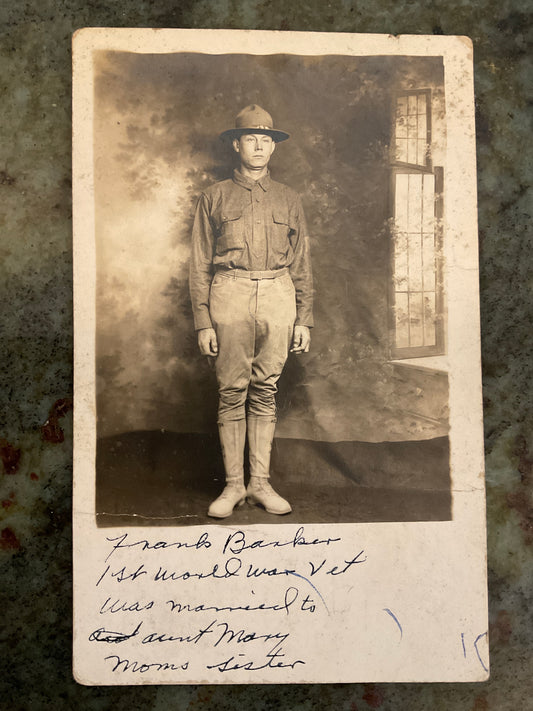 Frank Barker
1st World War Vet
was married to
aunt Mary
Moms sister